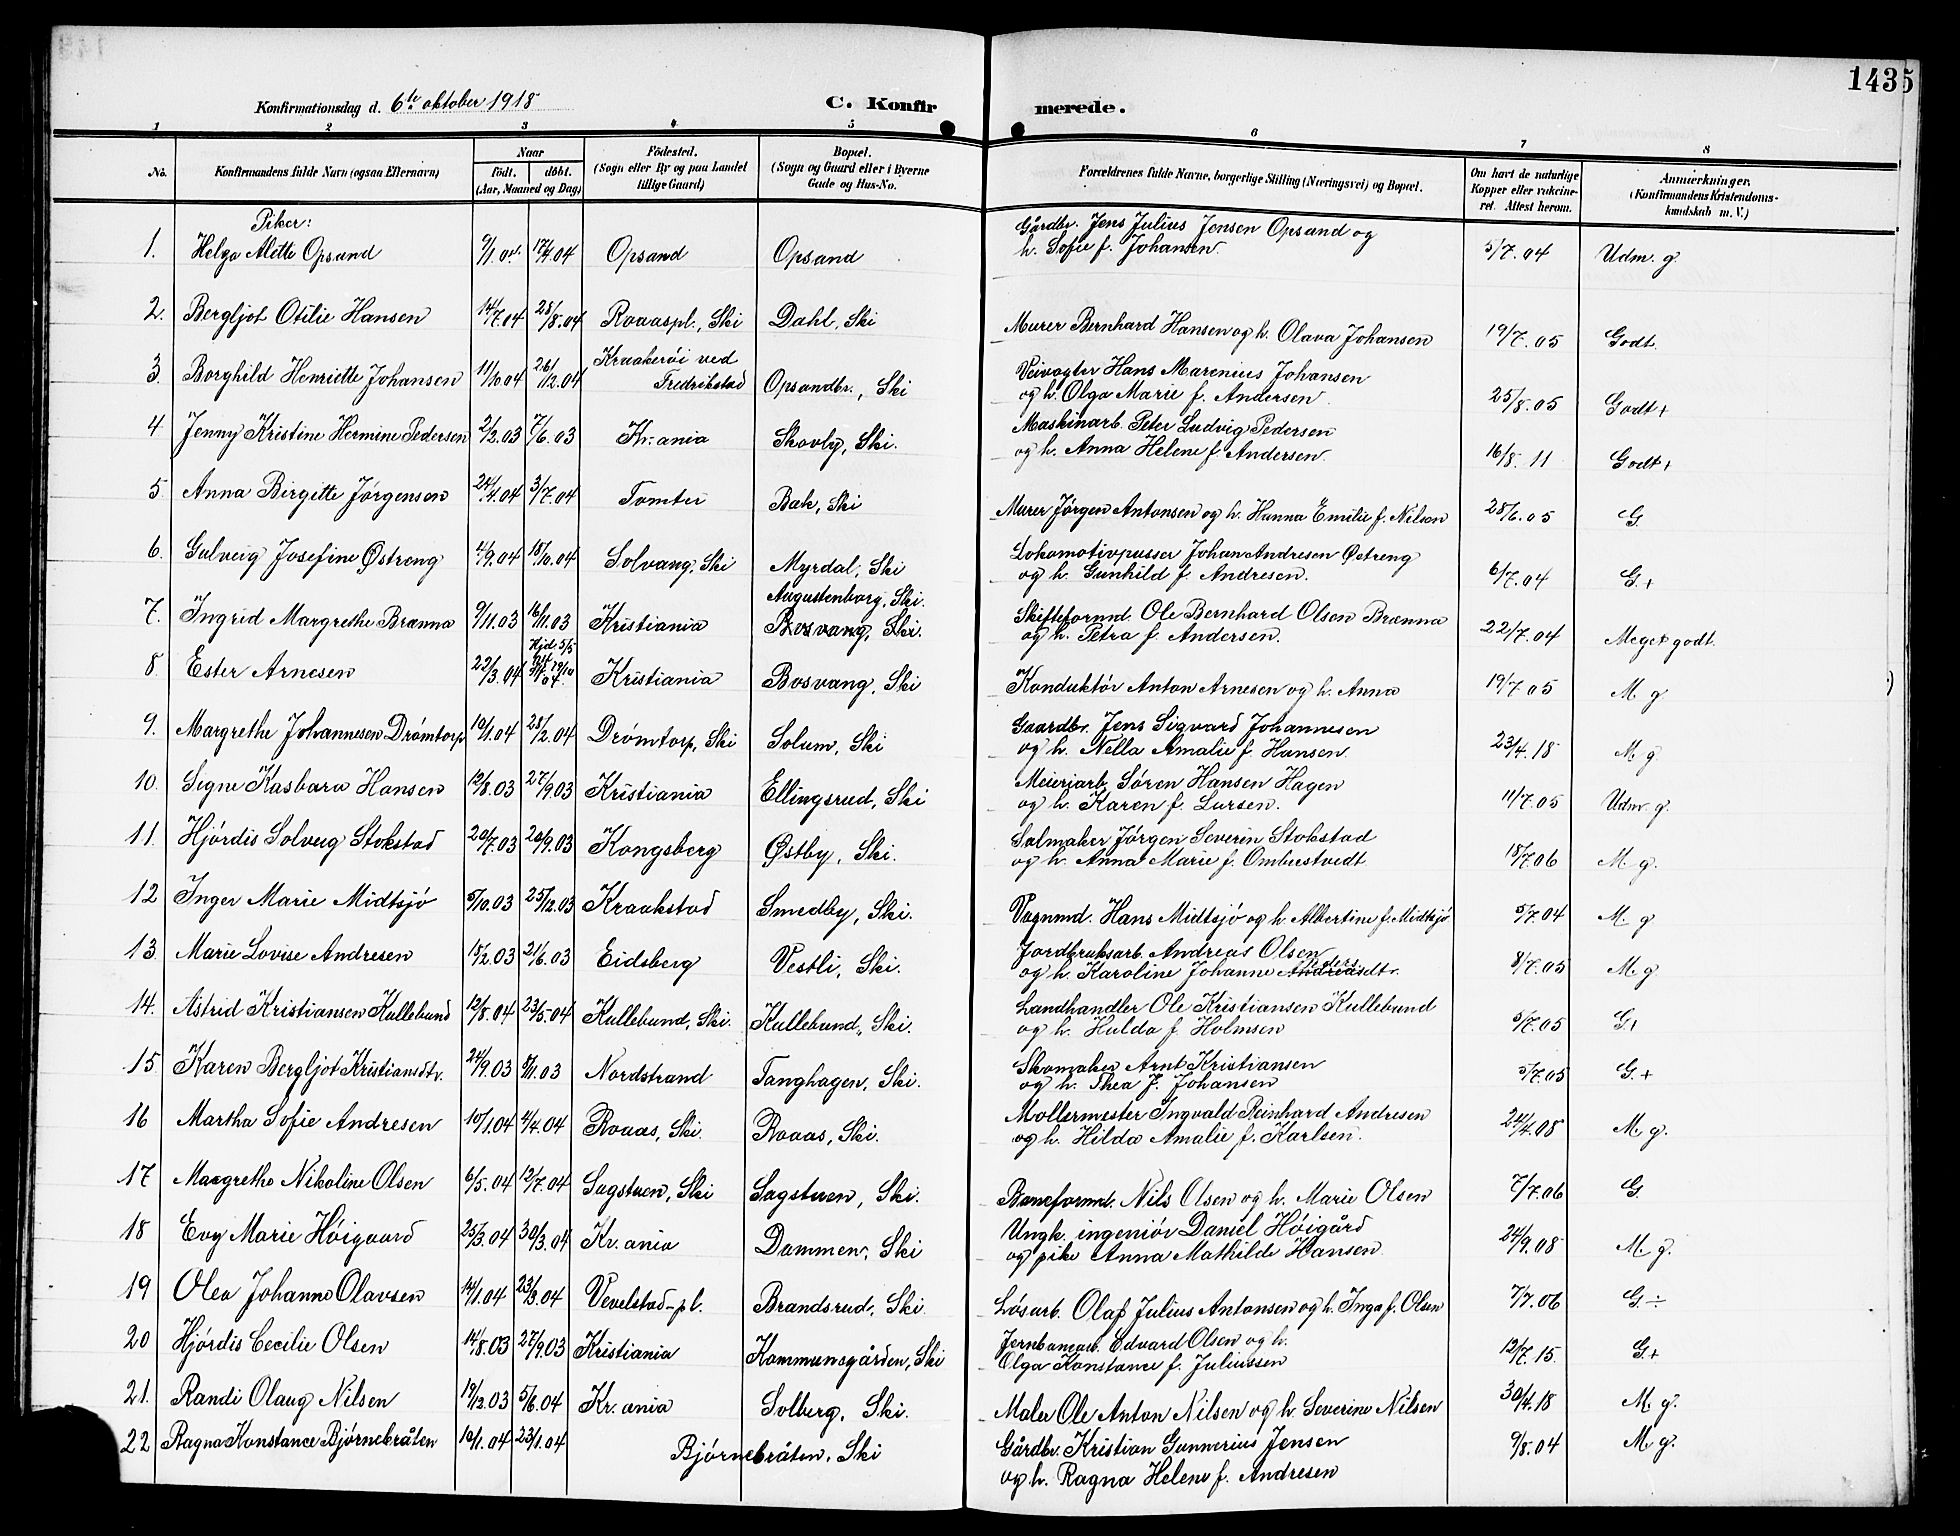 1435
Konfirmationsdag d. 6te oktober 1918
C. Konfirmerede.
1 2 3 4 5 6 7 8
No.
Konfirmandens fulde Navn (ogsaa Efternavn)
Naar
födt. döbt.
(Aar, Maaned og Dag)
Födested.
(Sogn eller By og paa Landet
tillige Gaard)
Bopæl.
(Sogn og Gaard eller i Byerne
Gade og Hus-No.
Forældrenes fulde Navne, borgerlige Stilling (Næringsvei) og Bopæl.
Om havt de naturlige
Kopper eller vakcine-
ret. Attest herom.
Anmærkninger.
(Konfirmandens Kristendoms-
kundskab m. V.)
Piker:
1. Helga Alette Opsand 9/1.04. 17/4 04 Opsand Opsand Gårdbr. Jens Julius Jensen Opsand og
h. Sofie f. Johansen. 5/7.04 Udm. g.
2. Bergljot Otilie Hansen 14/7.04 28/8.04 Roaaspl., Ski Dahl, Ski Murer Bernhard Hansen og h. Olava Johansen 19/7.05 Godt.
3. Borghild Henriette Johansen 11/10 04 26/12.04 Kraakerøi ved
Fredrikstad Opsandbr., Ski Veivogter Hans Marenius Johansen
og h. Olga Marie f. Andersen 25/8.05 Godt+
4 Jenny Kristine Hermine Pedersen 2/2.03 7/6.03 Kr.ania Skovly, Ski. Maskinarb. Peter Ludvig Pedersen
og h. Anna Helene f. Andersen. 16/8.11 Godt+
5. Anna Birgitte Jørgensen 24/4.04 3/7.04 Tomter Bak, Ski Murer Jørgen Antonsen og h. Hanna Emilie f. Nilsen 28/6.05 G
6. Solveig Josefine Østreng 4/9.04 18/10.04 Solvang, Ski Myrdal, Ski Lokomotivpusser Johan Andresen Østreng
og h. Gunhild f. Andresen. 6/7.04 G.+
7. Ingrid Margrethe Brænna 9/11.03 16/11.03 Kristiania Augustenborg, Ski.
Bosvang, Ski. Skifteformd. Ole Bernhard Olsen Brænna
og h. Petra f. Andersen. 22/7.04 Meget godt.
8. Ester Arnesen 22/3.04 Hjd 5/5 Kristiania Bosvang, Ski Konduktør Anton Arnesen og h. Anna 19/7.05 M g
9. Margrethe Johannesen Drømtorp 10/1.04 28/2.04 Drømtorp, Ski Solum, Ski Gaardbr. Jens Sigvard Johannesen
og h. Nella Amalie f. Hansen. 23/4.18 M. g.
10. Signe Kasbara Hansen 12/8.03 27/9.03 Kristiania Ellingsrud, Ski Meieriarb. Søren Hansen Hagen
og h. Karen f. Larsen. 11/7.05 Udm. g.
11. Hjördis Solveig Stokstad 20/7.03 20/9.03 Kongsberg Østby, Ski. Salmaker Jørgen Severin Stokstad
og h. Anna Marie f. Ombustvedt 18/7.06 M. g.
12 Inger Marie Midtsjö 5/10.03 25/12.03 Kraakstad Smedby, Ski. Vognmd. Hans Midtsjö og h. Albertine f. Midtsjö 5/7.04 M. g
13. Marie Lovise Andresen 18/2 03 21/6.03 Eidsberg Vestli, Ski. Jordbruksarb. Andreas Olsen
og h. Karoline Johanne Andreasdtr. 8/7.05 M. g
14. Astrid Kristiansen Kullebund 12/8.04 23/5.04 Kullebund, Ski. Kullebund, Ski. Landhandler Ole Kristiansen Kullebund
og h. Hulda f. Holmsen 5/7.05 G+
15 Karen Bergljot Kristiansdtr. 24/9.03 8/11.03 Nordstrand Tanghagen, Ski. Skomaker Arnt Kristiansen
og h. Thea J. Johansen 5/7.05 G.+
16 Martha Sofie Andresen 10/1.04 4/4.04 Roaas, Ski. Roaas, Ski. Møllermester Ingvald Reinhard Andresen
og h. Hilda Amalie f. Karlsen. 24/4.08 M. g.
17 Margrethe Nikoline Olsen 6/5.04 12/7.04 Sagstuen, Ski Sagstuen, Ski. Baneformd. Nils Olsen og h. Marie Olsen 7/7.06 G.
18 Evy Marie Høigaard 25/3.04 30/3.04 Kr.ania Dammen, Ski Ungk. ingeniør Daniel Høigård
og pike Anna Mathilde Hansen. 24/9.08 M. g.
19 Olea Johanne Olavsen 14/1.04 23/3.04 Vevelstad-pl. Brandsrud, Ski. Løsarb. Olaf Julius Antonsen og h. Inga f. Olsen 7/7.06 G÷
20 Hjördis Cecilie Olsen 14/8.03 27/9.03 Kristiania Kommunegården, Ski Jernbanearb. Edvard Olsen og h.
Olga Konstance f. Juliussen 12/7.15. G+
21. Randi Olaug Nilsen 19/2.03 5/6.04 Kr.ania Solberg, Ski. Maler Ole Anton Nilsen og h. Severine Nilsen 30/4.18 M. g.
22 Ragna Konstance Bjørnebråten 10/1.04 23/1.04 Bjørnebråten, Ski Gårdbr. Kristian Gunnerius Jensen
og h. Ragna Helene f. Andresen 9/8.04 M. g.